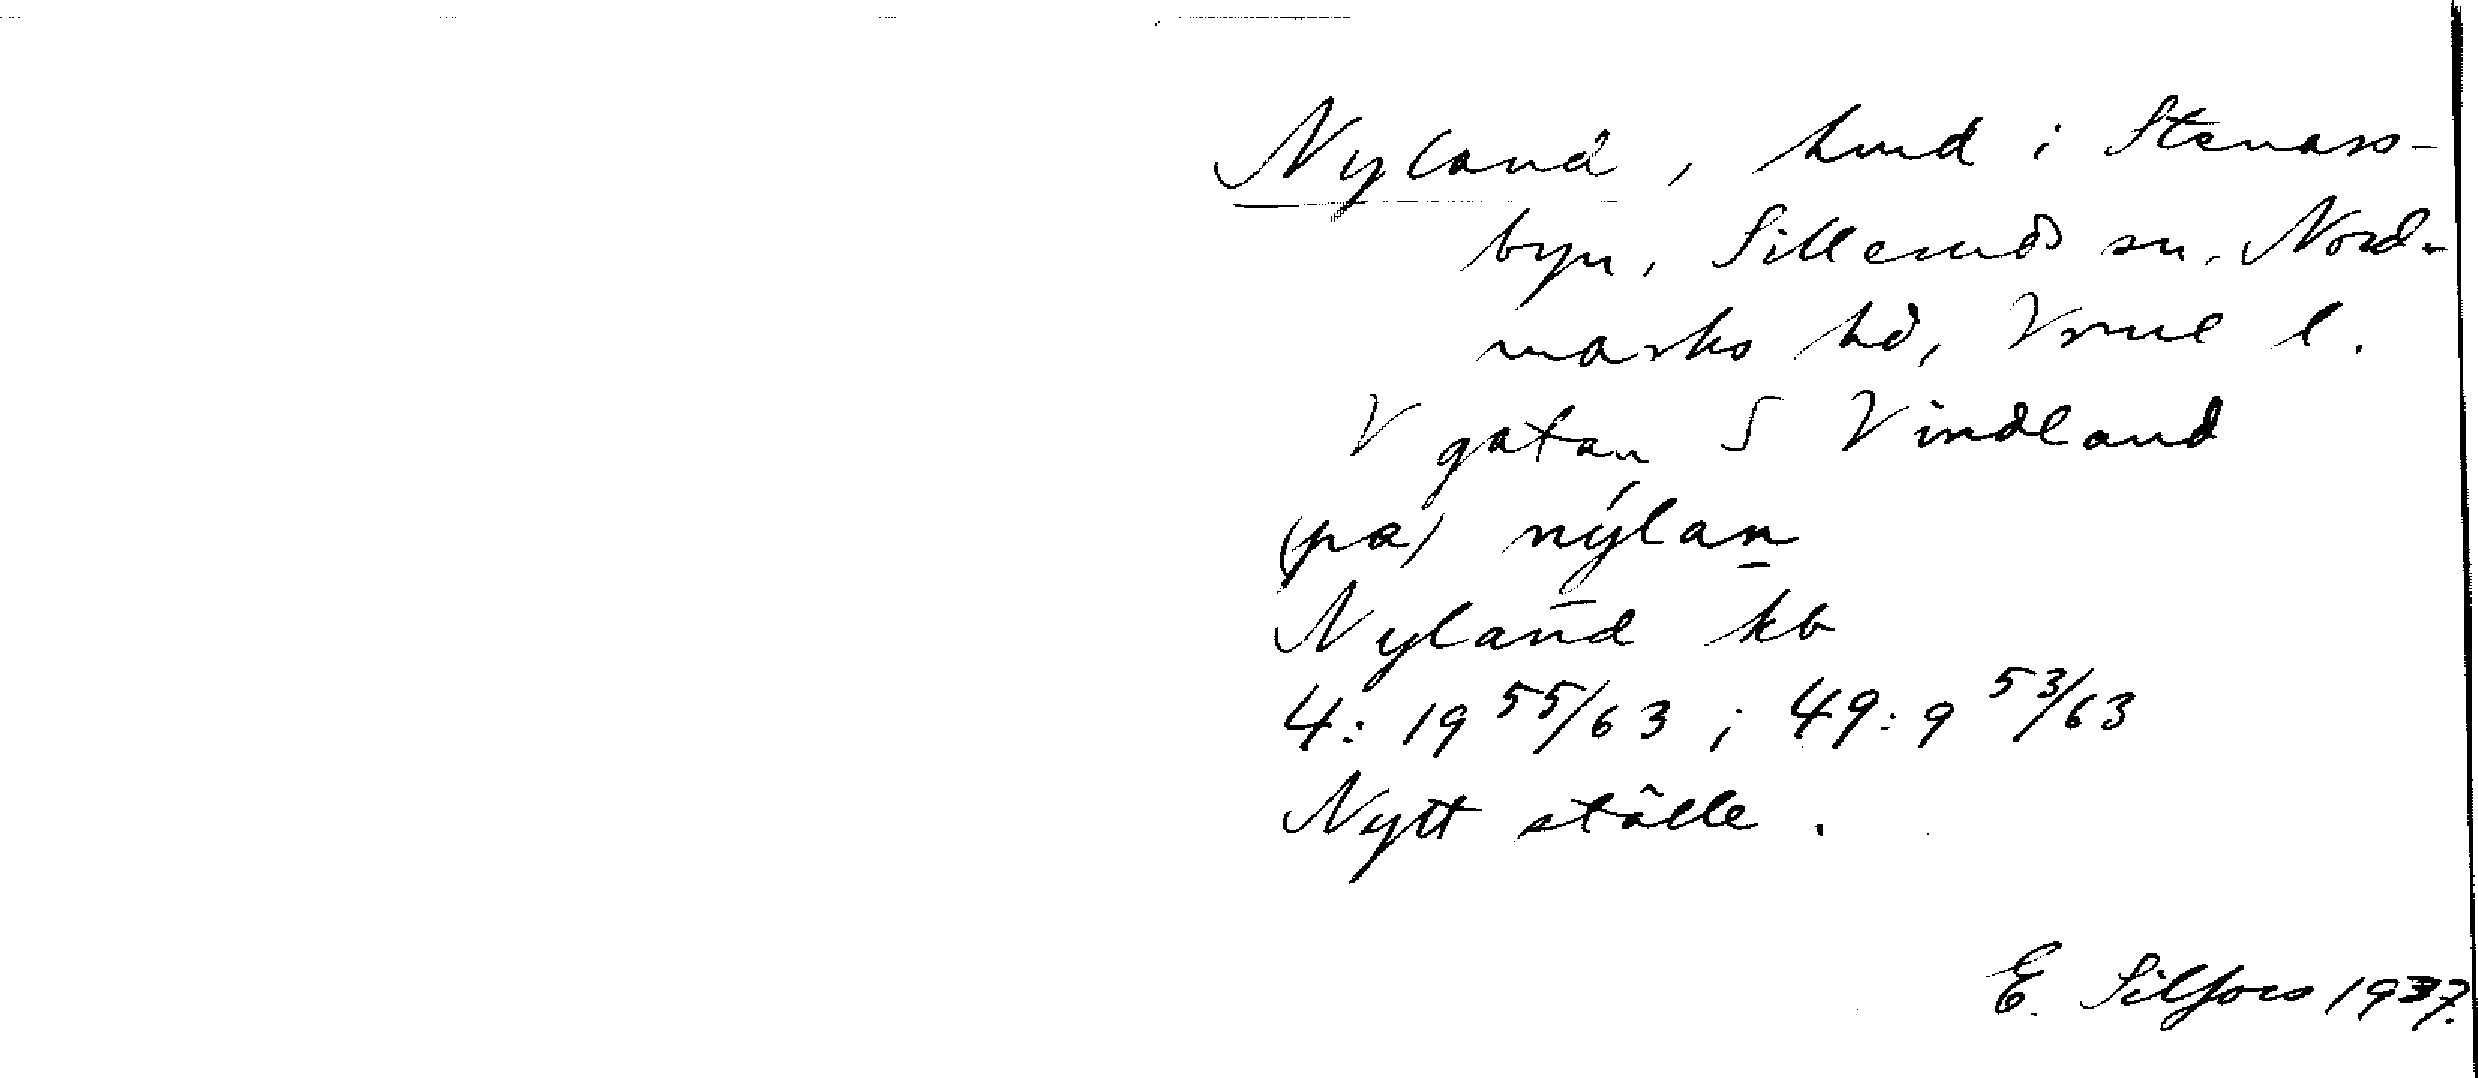 Nyland, hmd i Stenars-
byn, Sillerud sn. Nord-
marks hd, Vrml l.
V gatan S Vindland
(pa) nýlan
Nyland kb
4: 19 55/63 ; 49: 9 53/63
Nytt ställe .
E. Silfors 1937.